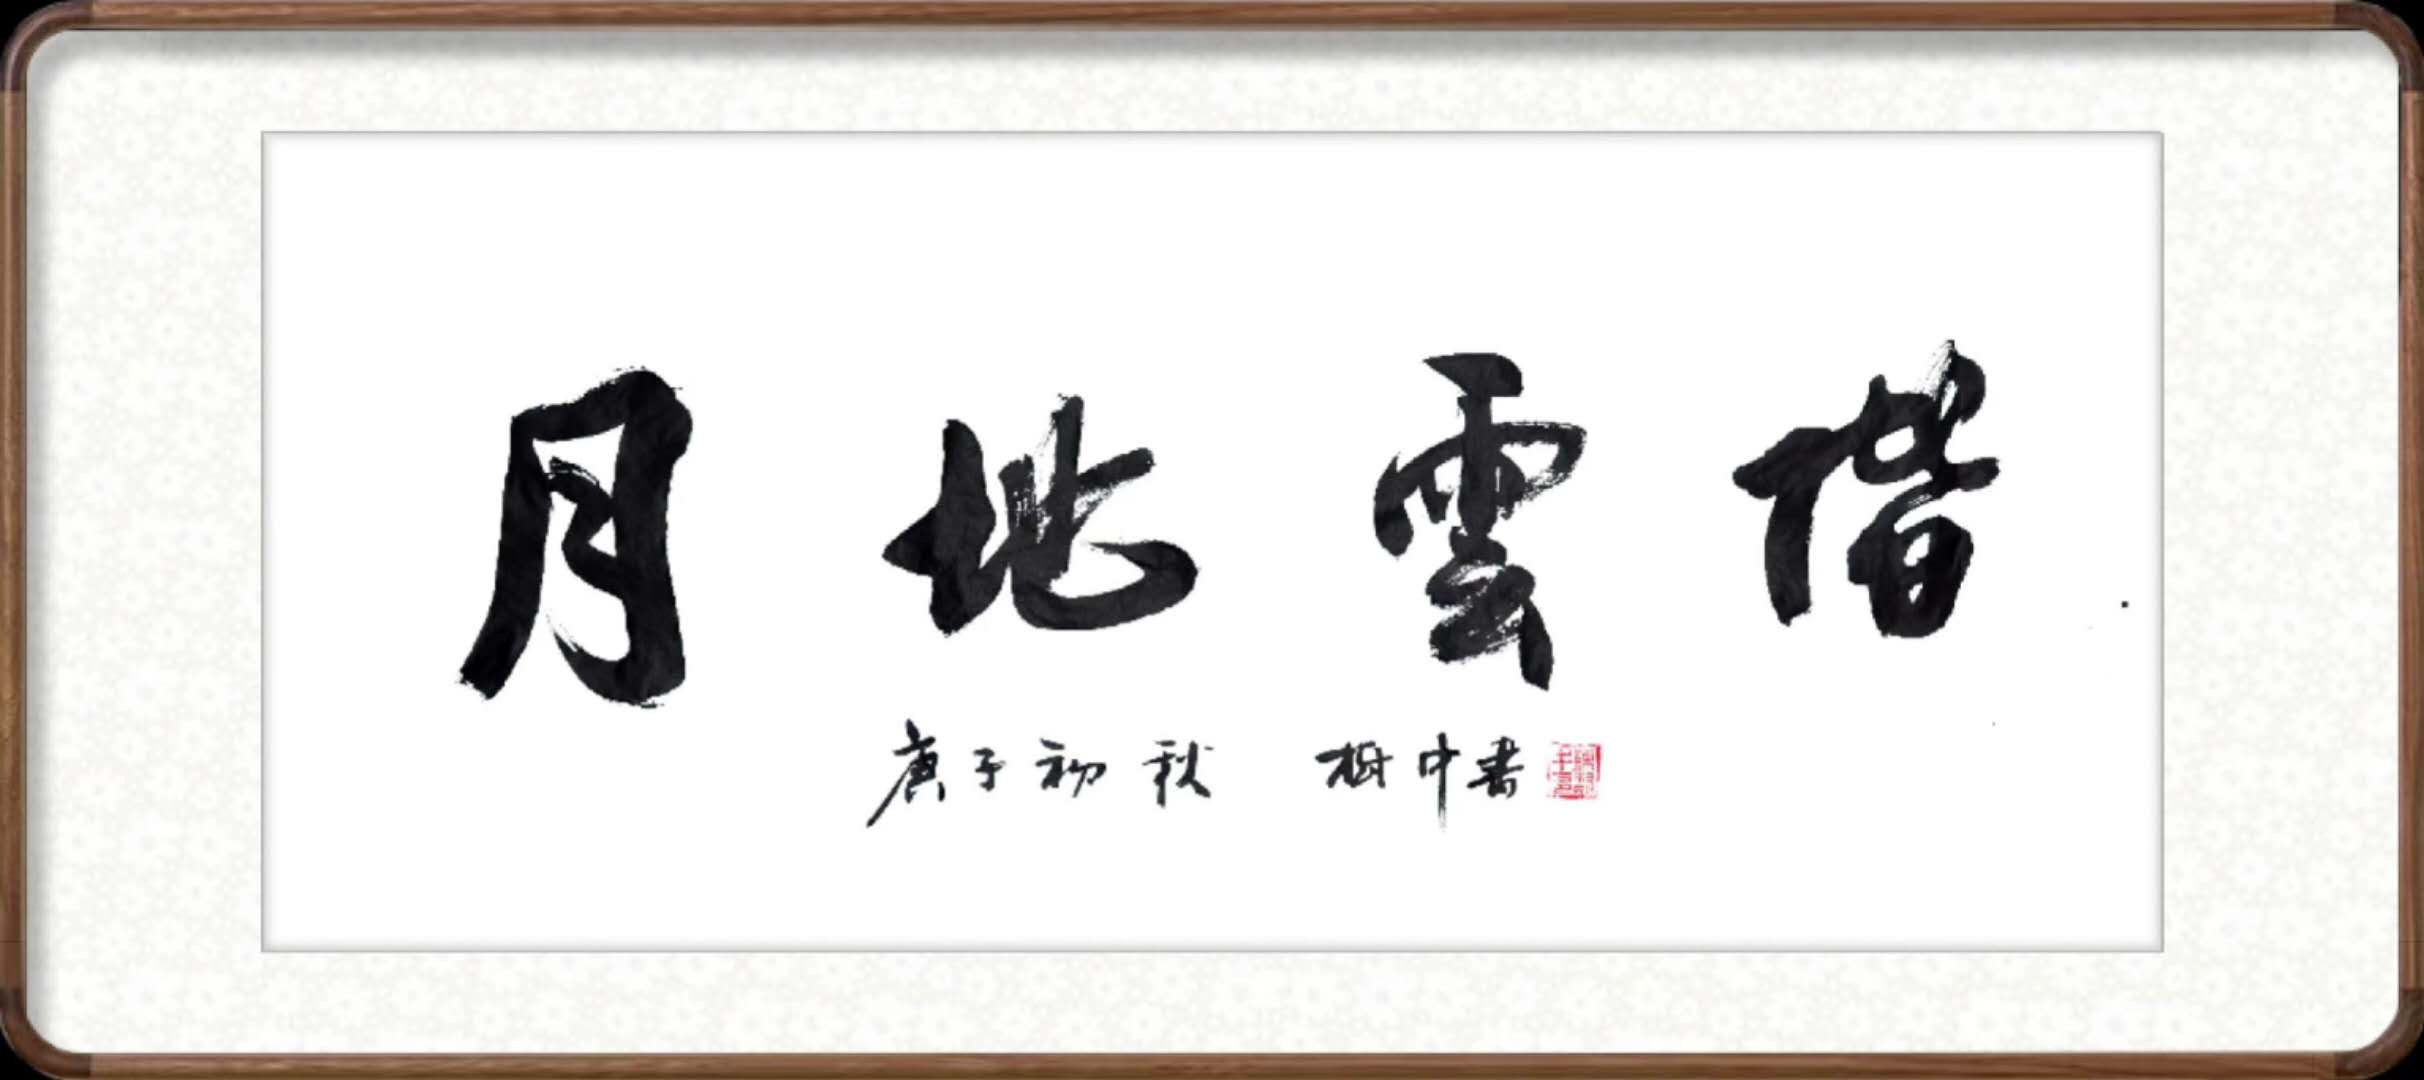 月地雲階
庚子初秋 樹中書